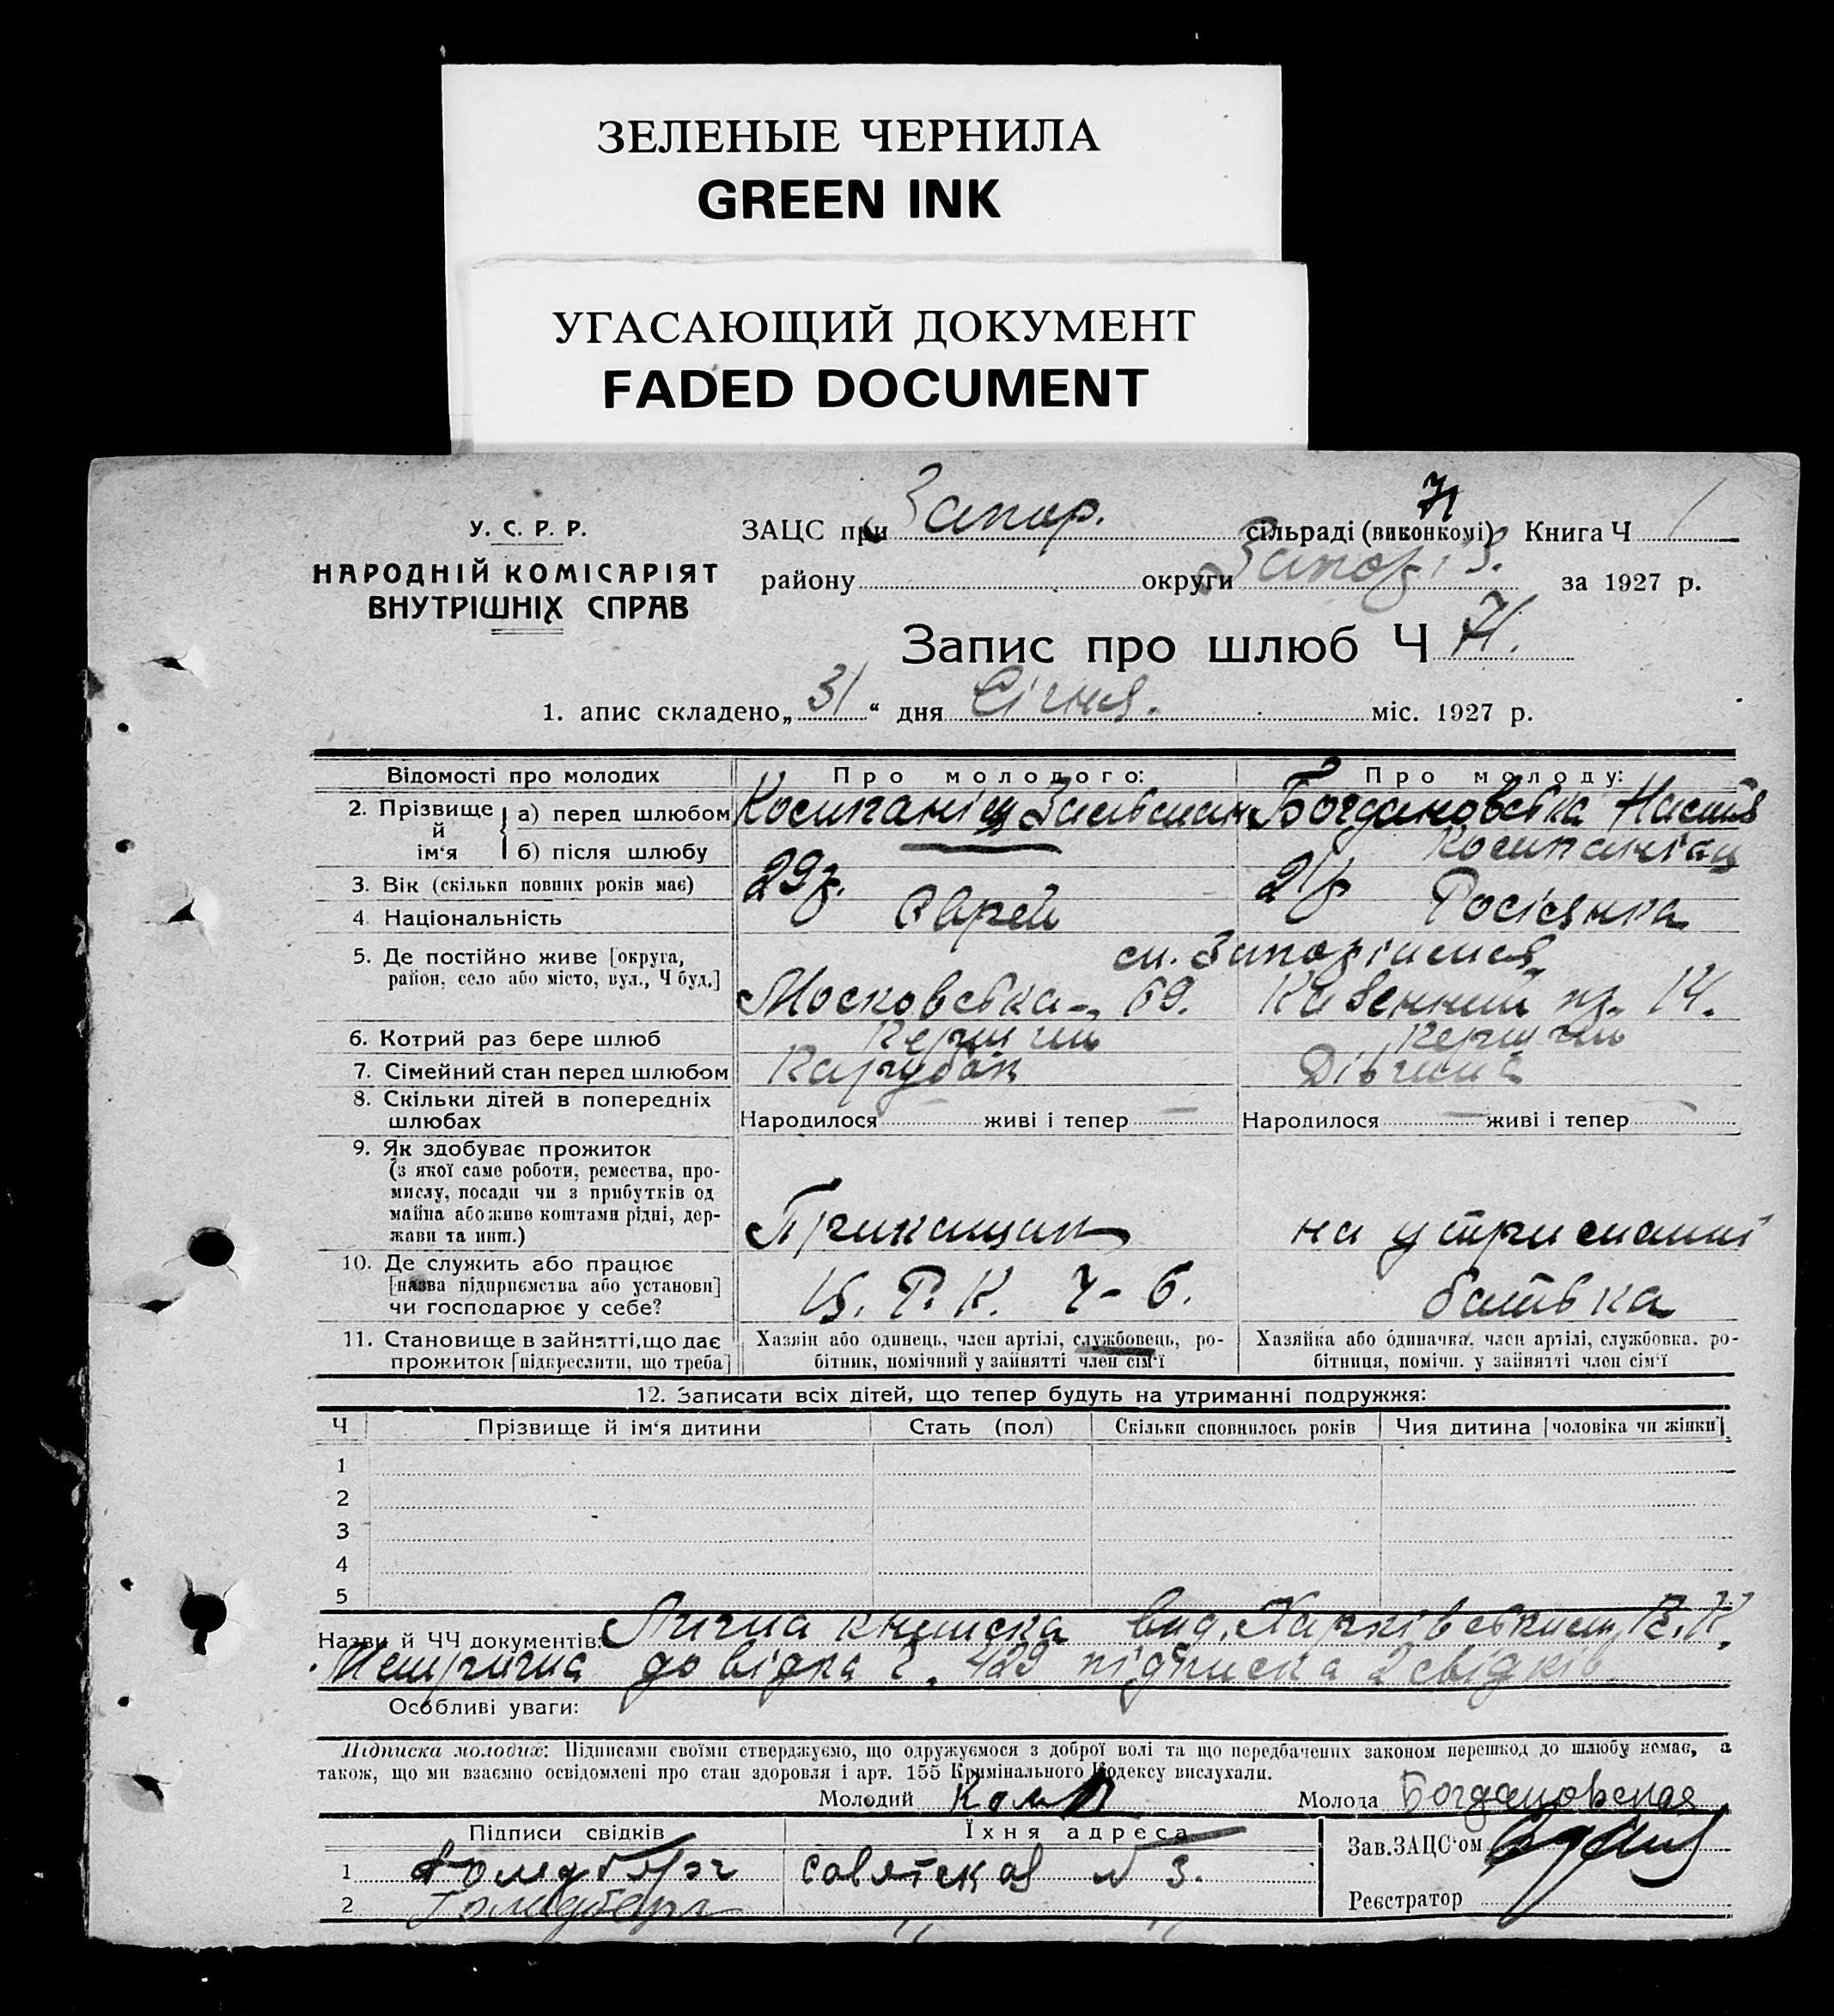 ЗЕЛЕНЫЕ ЧЕРНИЛА
GREEN INK
УГАСАЮЩИЙ ДОКУМЕНТ
FADED DOCUMENT
У. С. Р. Р.
НАРОДНІЙ КОМІСАРІЯТ
ВНУТРІШНІХ СПРАВ
71
ЗАЦС при Запор. сільраді (виконкомі) Книга Ч 1
району округи Запоріз. за 1927 р.
Запис про шлюб Ч 71.
1. апис складено „31“ дня Січня. міс. 1927 р.
Відомості про молодих Про молодого: Про молоду:
2. Прізвище й ім‘я а) перед шлюбом Зальман Богдановська Настя
б) після шлюбу
3. Вік (скільки повних років має) 29 р. 21 р
4. Національність Єврей Росіянка
5. Де постійно живе [округа, район, село або місто, вул., Ч буд.] м. Запоріжжя
Московська 69. Казенний 14.
6. Котрий раз бере шлюб Перший Перший
7. Сімейний стан перед шлюбом Парубок Дівчина
8. Скільки дітей в попередніх шлюбах Народилося — живі і тепер — Народилося — живі і тепер —
9. Як здобуває прожиток
(з якої саме роботи, ремества, про-
мислу, посади чи з прибутків од
майна або живе коштами рідні, дер-
жави та инш.) Прикащик на утриманні
10. Де служить або працює
[назва підприємства або установи]
чи господарює у себе? Ц. Р. К. Ч - 6. батька
11. Становище в зайнятті, що дає
прожиток [підкреслити, що треба]
Хазяін або одинець, член артілі, службовець, ро-
бітник, помічний у зайнятті член сім‘ї
Хазяйка або одиначка, член артілі, службовка. ро-
бітниця, помічн. у зайнятті член сім‘ї
12. Записати всіх дітей, що тепер будуть на утриманні подружжя:
Ч Прізвище й ім‘я дитини Стать (пол) Скільки сповнилось років Чия дитина [чоловіка чи жінки].
1
2
3
4
5
Назви й ЧЧ документів: Лична книжка вид. Харківським В. К.
Метрична довідка ч. 429 підписка 2 свідків
Особливі уваги:
Підписка молодих: Підписами своїми стверджуємо, що одружуємося з доброї волі та що передбачених законом перешкод до шлюбу немає, а
також, що ми взаємно освідомлені про стан здоровля і арт. 155 Кримінального Кодексу вислухали.
Молодий Молода Богдановская
Підписи свідків Їхня адреса Зав.ЗАЦС‘ом
1 савятская № 3.
2 Гольдберг
Реєстратор